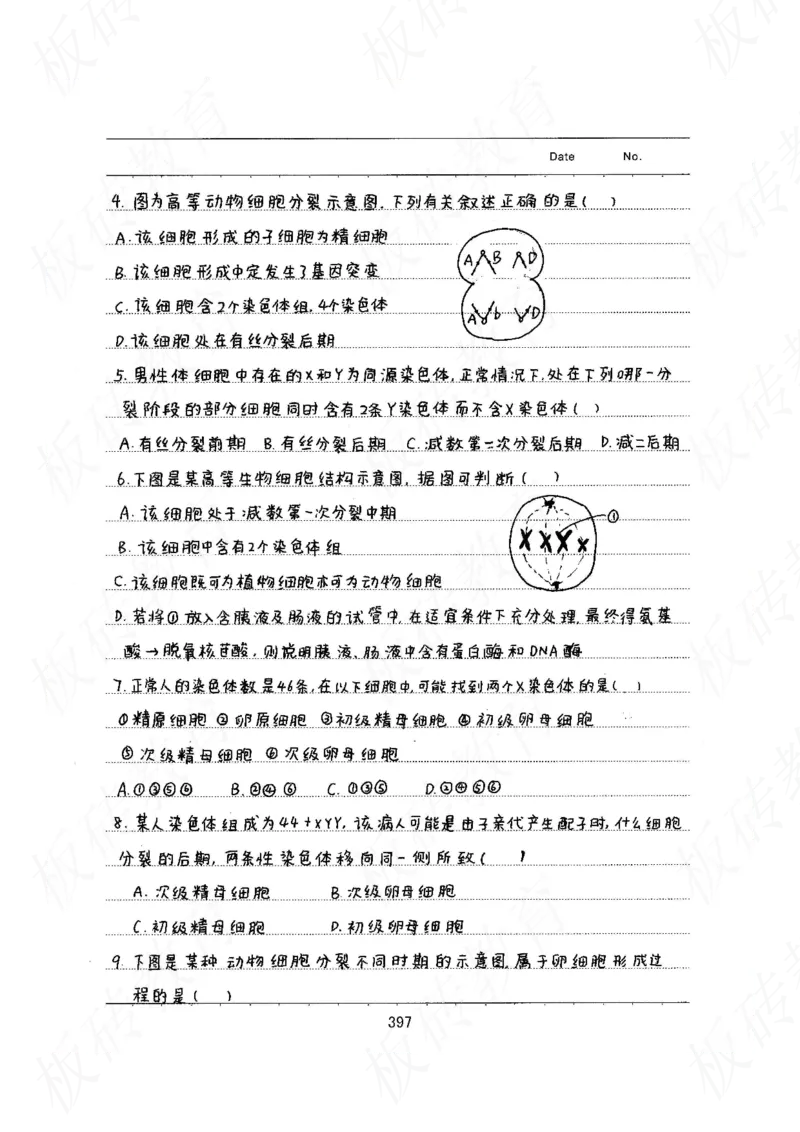 Date No.
4. 图为高等动物细胞分裂示意图,下列有关叙述正确的是( )
A.该细胞形成的子细胞为精细胞
B.该细胞形成中定发生了基因突变
C.该细胞含2个染色体组,4个染色体
D.该细胞处在有丝分裂后期
A B D
A b D
5.男性体细胞中存在的X和Y为同源染色体,正常情况下,处在下列哪一分
裂阶段的部分细胞同时含有2条Y染色体而不含X染色体( )
A.有丝分裂前期 B.有丝分裂后期 C.减数第二次分裂后期 D.减二后期
6.下图是某高等生物细胞结构示意图,据图可判断( )
A.该细胞处于减数第一次分裂中期
①
B.该细胞中含有2个染色体组
C.该细胞既可为植物细胞亦可为动物细胞
D.若将①放入含胰液及肠液的试管中,在适宜条件下充分处理,最终得氨基
酸→脱氧核苷酸,则说明胰液、肠液中含有蛋白酶和DNA酶
7.正常人的染色体数是46条,在以下细胞中,可能找到两个X染色体的是( )
①精原细胞 ②卵原细胞 ③初级精母细胞 ④初级卵母细胞
⑤次级精母细胞 ⑥次级卵母细胞
B.②④⑥ C.①③⑤ D.②④⑤⑥
8.某人染色体组成为44+XYY,该病人可能是由于亲代产生配子时,什么细胞
分裂的后期,两条性染色体移向同一侧所致( )
A.次级精母细胞 B.次级卵母细胞
C.初级精母细胞 D.初级卵母细胞
9.下图是某种动物细胞分裂不同时期的示意图,属于卵细胞形成过
程的是( )
397
板砖教育